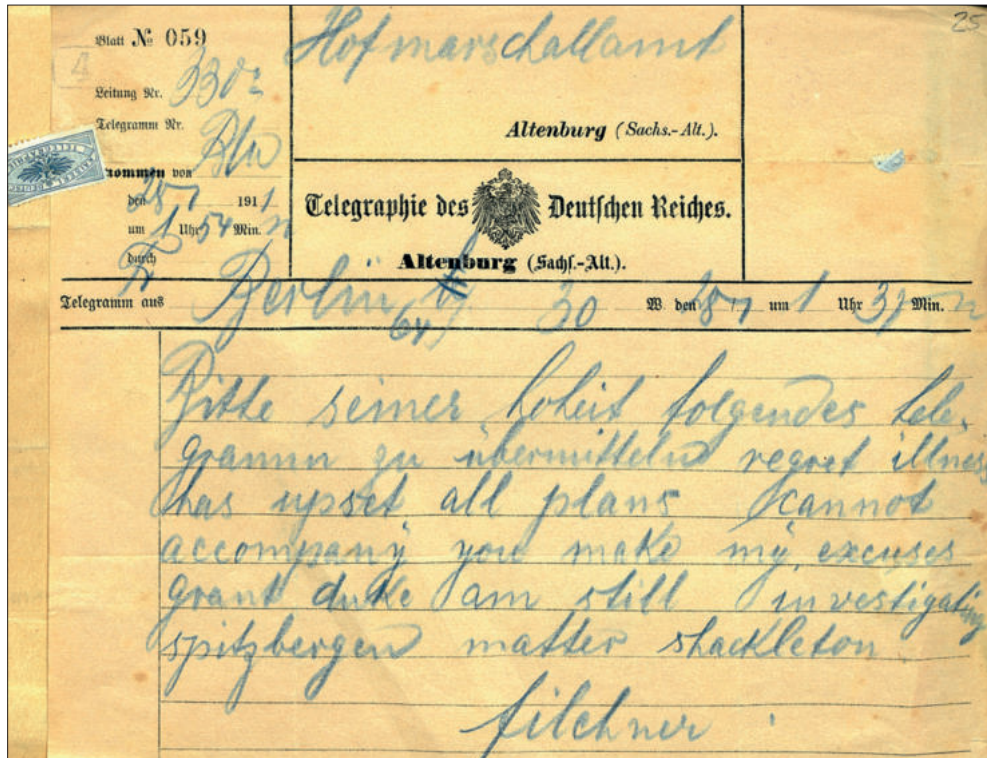 25
Blatt № 059
4
Leitung Nr. 330
Telegramm Nr.
kommen von Bln
den 28/7 1911
um 1 Uhr 54 Min. n
durch
Hofmarschallamt
Altenburg (Sachs.-Alt.).
Telegraphie des Deutschen Reiches.
Altenburg (Sachs.-Alt.).
Telegramm aus Berlin 64 30 W den 28/7 um 1 Uhr 37 Min. n
Bitte seiner hoheit folgendes tele-
gramm zu übermitteln regret illness
has upset all plans cannot
accompany you make my excuses
grant duke am still investigating
spitzbergen matter shackleton
filchner .